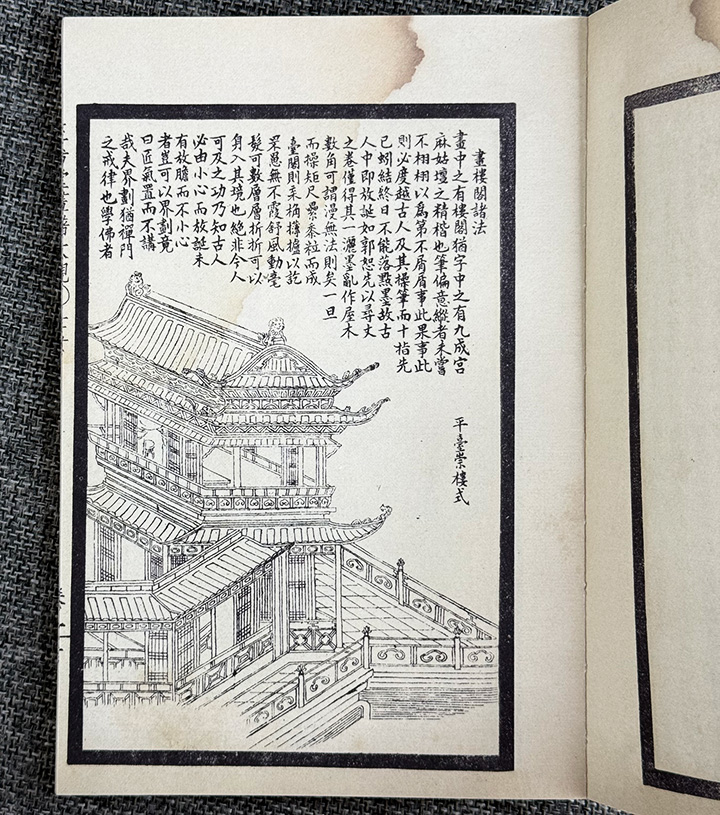 畫樓閣諸法
畫中之有樓閣猶字中之有九成宮
麻姑壇之精楷也筆偏意縱者未嘗
不栩栩以爲第不屑屑事此果事此
則必度越古人及其操筆而十指先
已蚓結終日不能落點墨故古
人中即放誕如郭恕先以尋丈
之卷僅得其一灑墨亂作屋木
數角可謂漫無法則矣一旦
而操矩尺纍黍粒而成
臺閣則桷欂櫨以訖
罘罳無不霞舒風動毫
髮可數層層折折可以
身入其境也絕非今人
可及之功乃知古人
必由小心而放誕未
有放膽而不小心
者豈可以界劃竟
曰匠氣置而不講
哉夫界劃猶禪門
之戒律也學佛者
平臺崇樓式